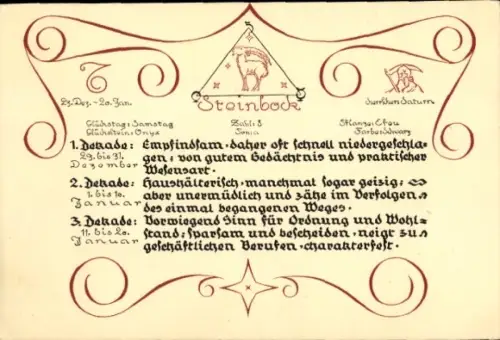 Steinbock
23. Dez. - 20. Jan.
Herrscher: Saturn
Glückstag: Samstag Zahl: 8 Pflanze: Efeu
Glückstein: Onyx Farbe: Schwarz
1. Dekade: Empfindsam · daher oft schnell niedergeschla=
23. bis 31. gen · von gutem Gedächtnis und praktischer
Dezember Wesensart.
2. Dekade: Haushälterisch · manchmal sogar geizig ·
1. bis 10. aber unermüdlich und zähe im Verfolgen
Januar des einmal begangenen Weges ·
3. Dekade: Vorwiegend Sinn für Ordnung und Wohl=
11. bis 20. stand · sparsam und bescheiden · neigt zu
Januar geschäftlichen Berufen · charakterfest ·